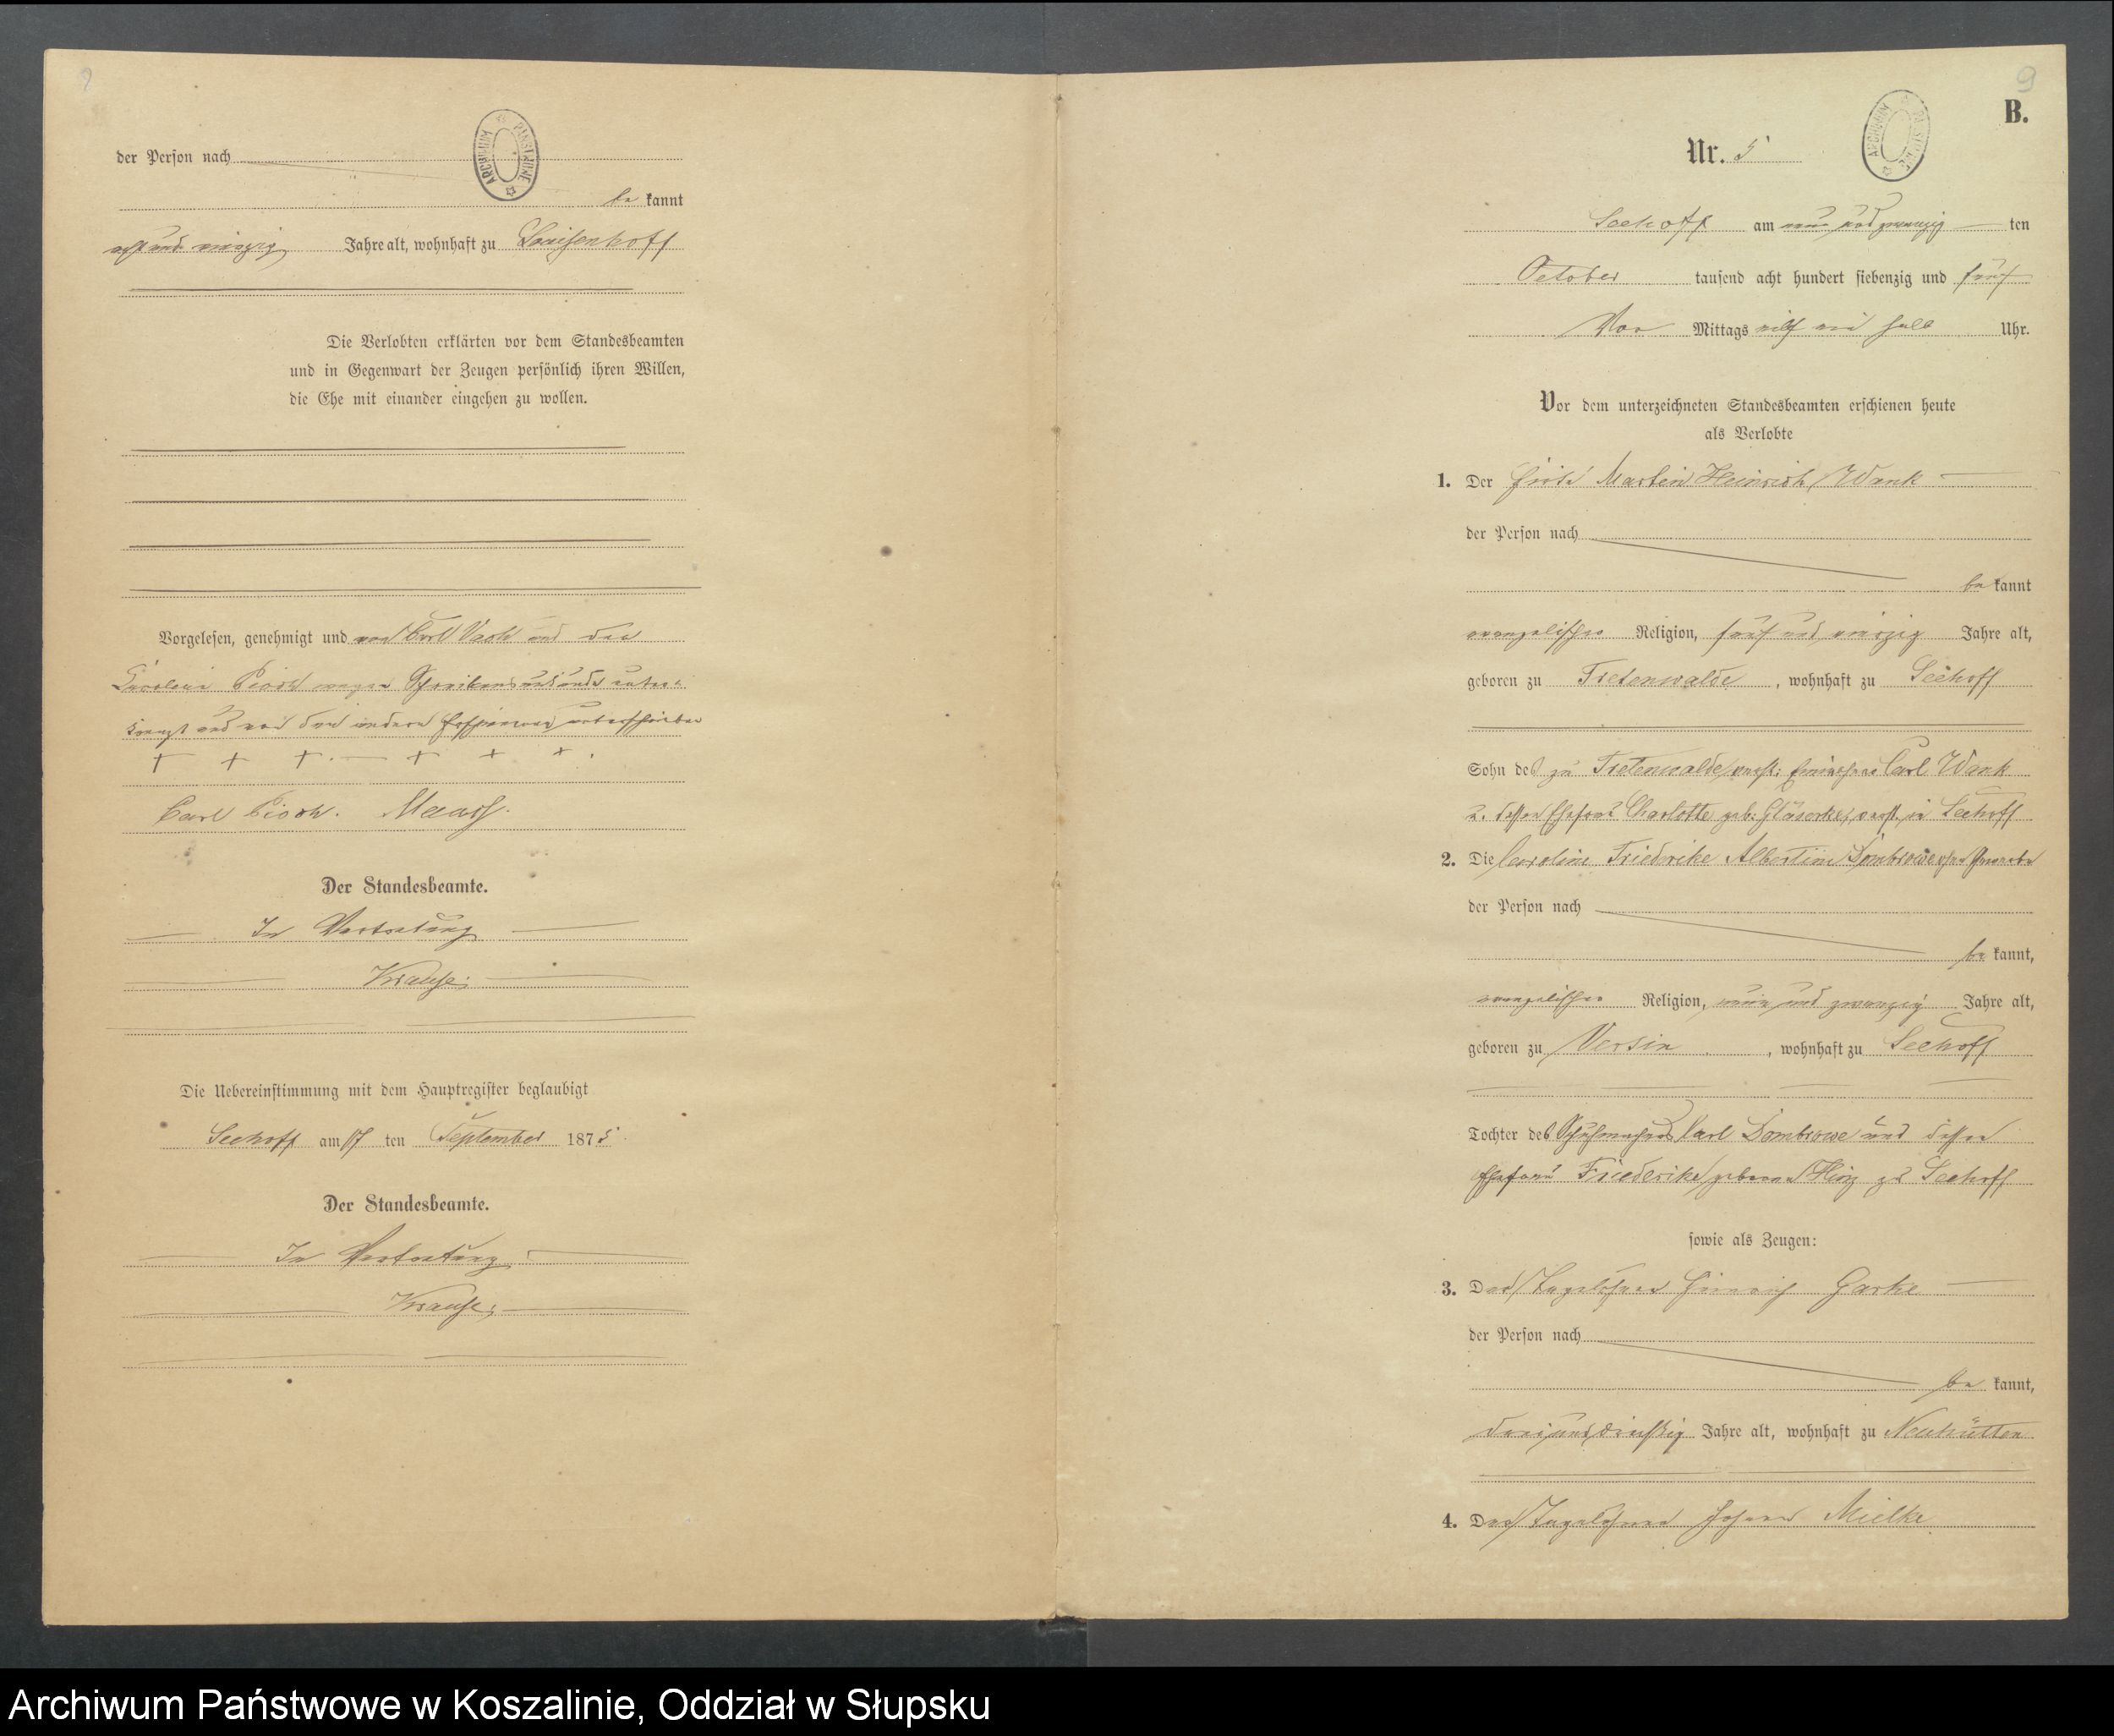 der Person nach
be kannt
acht und vierzig Jahre alt, wohnhaft zu Louisenhoff
Die Verlobten erklärten vor dem Standesbeamten
und in Gegenwart der Zeugen persönlich ihren Willen,
die Ehe mit einander eingehen zu wollen.
Vorgelesen, genehmigt und von Carl und der
wegen Schreibensunkunde unter=
kreuzt und von den andern unterschrieben
+ + + + + +
Carl Maass.
Der Standesbeamte.
In Vertretung
Krause
Die Uebereinstimmung mit dem Hauptregister beglaubigt
Seehoff am 17 ten September 1875
Der Standesbeamte.
In Vertretung
Krause
9
B.
Nr. 5
ARCHIWUM PAŃSTWOWE
Seehoff am neun und zwanzig ten
October tausend acht hundert siebenzig und fünf
Vor Mittags elf ein halb Uhr.
Vor dem unterzeichneten Standesbeamten erschienen heute
als Verlobte
1. Der Hirte Martin Heinrich Wank
der Person nach
be kannt
evangelischer Religion, fünf und vierzig Jahre alt,
geboren zu Tretenwalde, wohnhaft zu Seehoff
Sohn des zu Tretenwalde Carl Wank
u. dessen Ehefrau Charlotte geb. Gläserke, in Seehoff
2. Die Caroline Friederike Albertine Dombrowe
der Person nach
be kannt,
evangelischer Religion, neun und zwanzig Jahre alt,
geboren zu Versin, wohnhaft zu Seehoff
Tochter des Schuhmachers Carl Dombrowe und dessen
Ehefrau Friederike geborne Hinz zu Seehoff
sowie als Zeugen:
3. Der Tagelöhner Heinrich Garke
der Person nach
be kannt,
drei und dreißig Jahre alt, wohnhaft zu Neuhütten
4. Der Tagelöhner Johann Mielke
Archiwum Państwowe w Koszalinie, Oddział w Słupsku